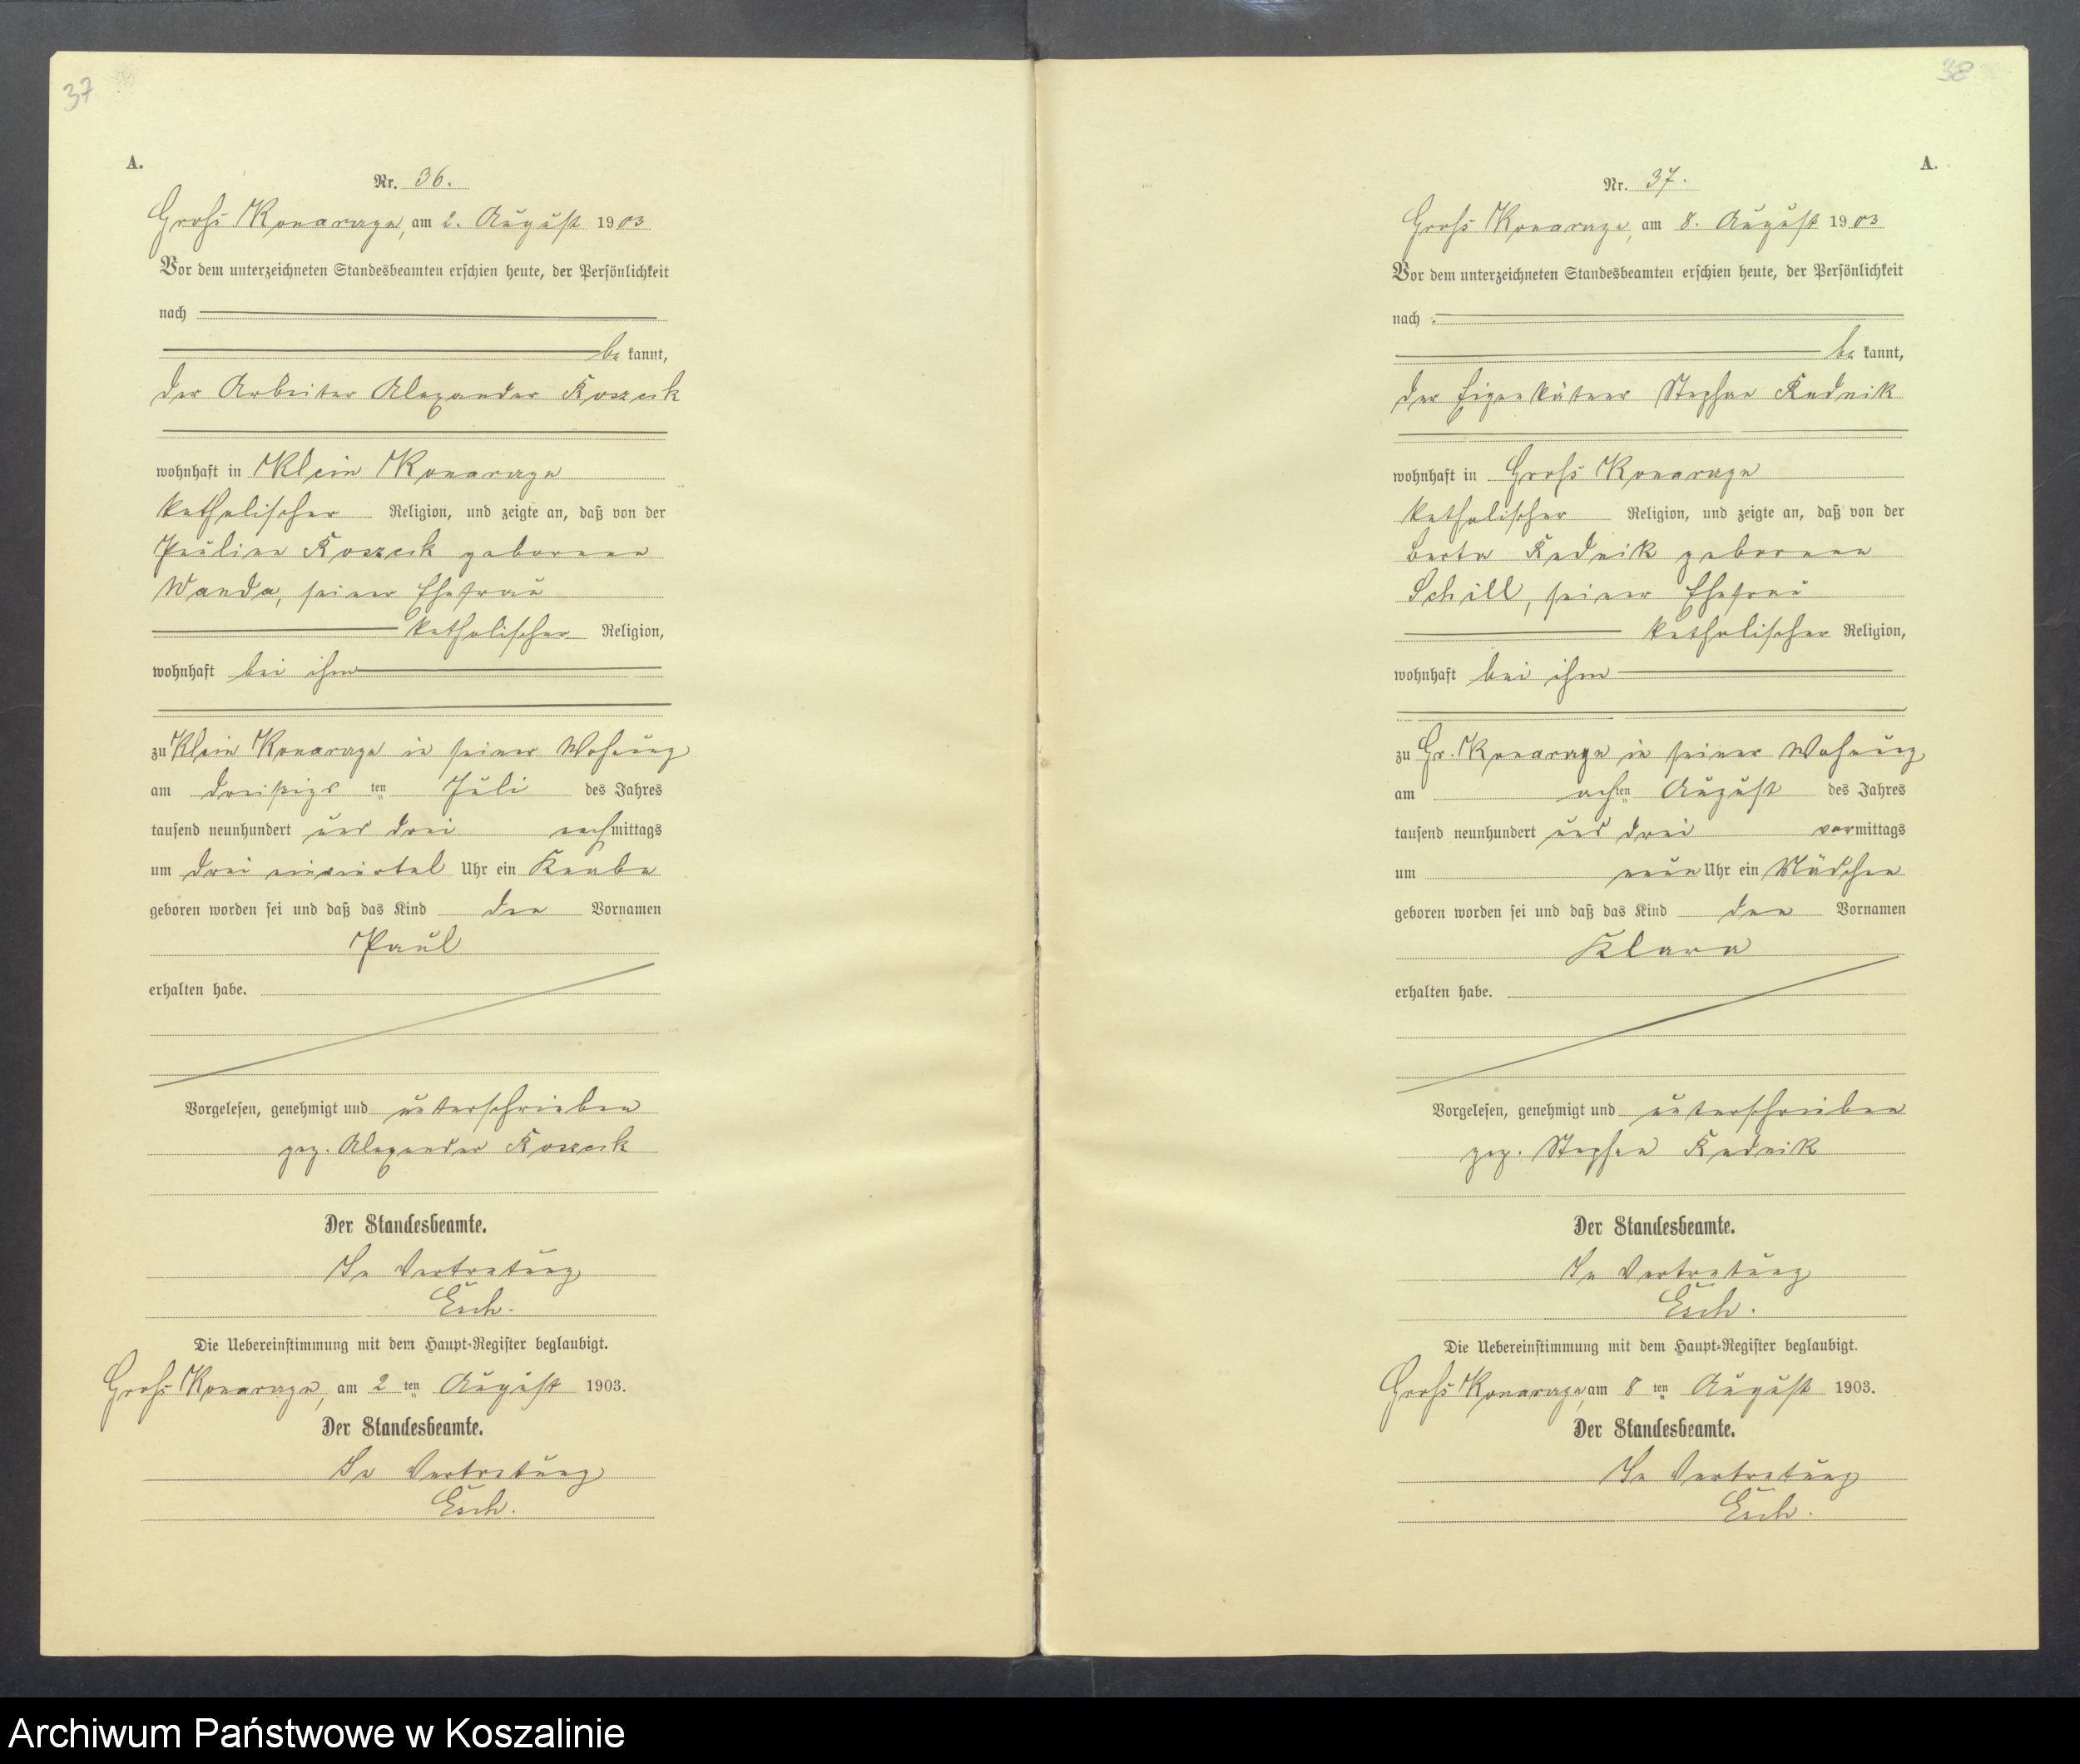 37
A.
Nr. 36.
Groß Konarczyn, am 2. August 1903
Vor dem unterzeichneten Standesbeamten erschien heute, der Persönlichkeit
nach
be kannt,
der Arbeiter Alexander
wohnhaft in Klein Konarczyn
katholischer Religion, und zeigte an, daß von der
Pauline geborenen
Wanda, seiner Ehefrau
katholischer Religion,
wohnhaft bei ihm
zu Klein Konarczyn in seiner Wohnung
am dreißigs ten Juli des Jahres
tausend neunhundert und drei nachmittags
um drei einviertel Uhr ein Knabe
geboren worden sei und daß das Kind den Vornamen
Paul
erhalten habe.
Vorgelesen, genehmigt und unterschrieben
gez. Alexander
Der Standesbeamte.
In Vertretung
Esch.
Die Uebereinstimmung mit dem Haupt-Register beglaubigt.
Groß Konarczyn, am 2 ten August 1903.
Der Standesbeamte.
In Vertretung
Esch.
38
A.
Nr. 37.
Groß Konarczyn, am 8. August 1903
Vor dem unterzeichneten Standesbeamten erschien heute, der Persönlichkeit
nach
be kannt,
der Eigenkätner Stephan Rudnik
wohnhaft in Groß Konarczyn
katholischer Religion, und zeigte an, daß von der
Berta Rudnik geborenen
Schill, seiner Ehefrau
katholischer Religion,
wohnhaft bei ihm
zu Gr. Konarczyn in seiner Wohnung
am achten August des Jahres
tausend neunhundert und drei vormittags
um neun Uhr ein Mädchen
geboren worden sei und daß das Kind den Vornamen
Klara
erhalten habe.
Vorgelesen, genehmigt und unterschrieben
gez. Stephan Rudnik
Der Standesbeamte.
In Vertretung
Esch.
Die Uebereinstimmung mit dem Haupt-Register beglaubigt.
Groß Konarczyn, am 8 ten August 1903.
Der Standesbeamte.
In Vertretung
Esch.
Archiwum Państwowe w Koszalinie